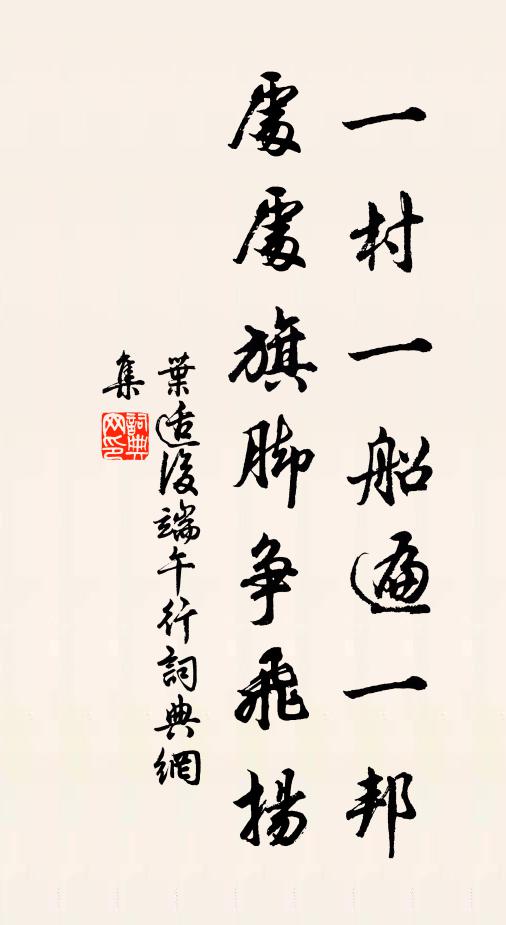 一村一船遍一邦
處處旗脚争飛揚
葉适後端午行詞典網
集
詞典
网印